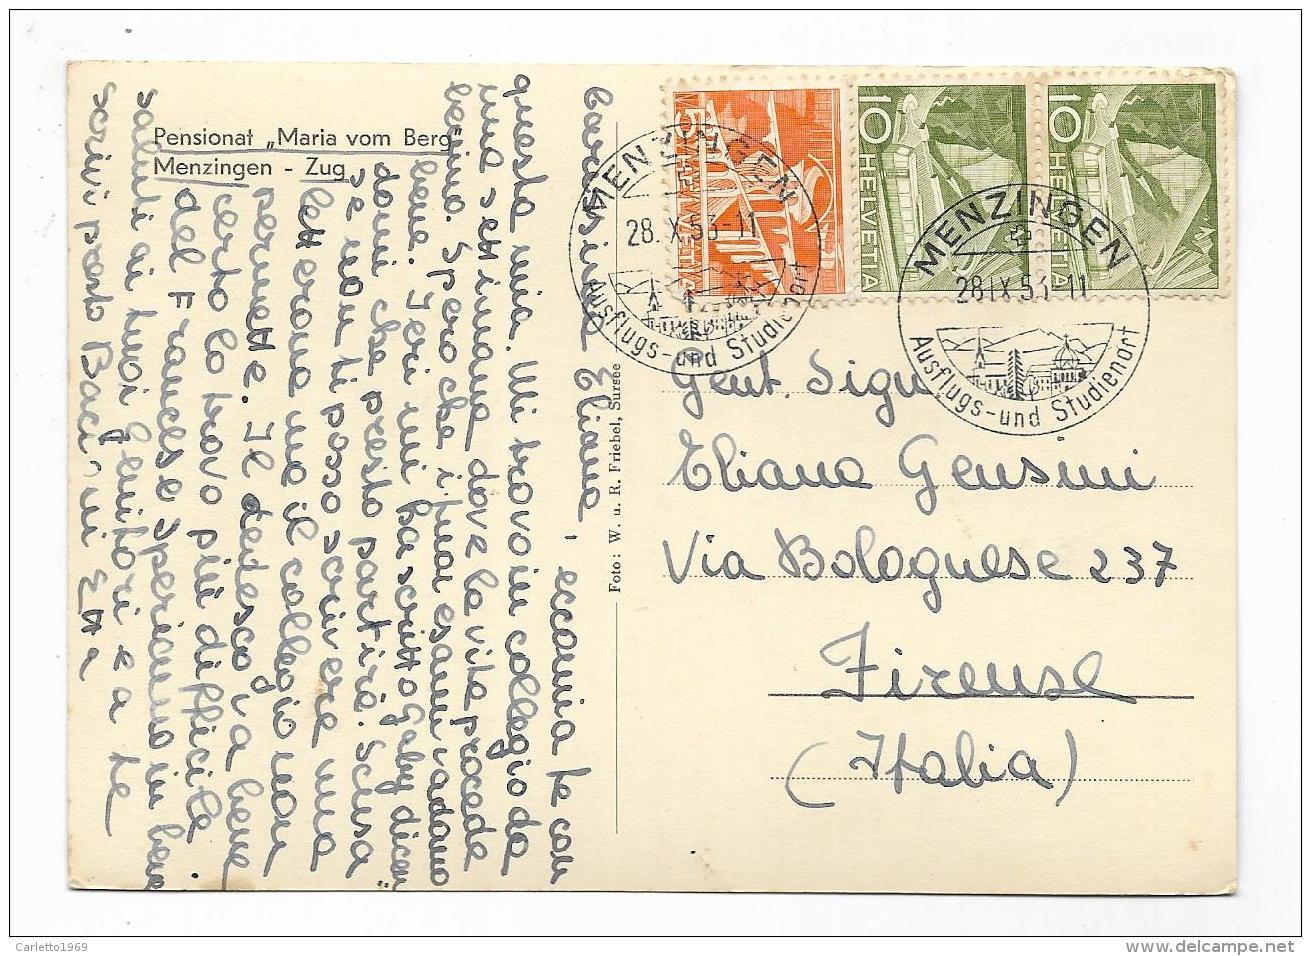 Pensionat „Maria vom Berg"
Menzingen - Zug
Carissima Eliana, eccomia te con
questa mia. Mi trovo in collegio da
una settimana dove la vita procede
benino. Spero che i tuoi esami vadano
bene. Ieri mi ha scritto Gaby dicen
domi che presto partirà. Scusa
se non ti posso scrivere una
lettera ma il collegio non
permette. Il tedesco va bene
certo lo trovo più difficile
del Francese speriamo in bene
saluti ai tuoi genitori e a te
scrivi presto Bacioni Etta
Foto: W. u. R. Friebel, Sursee
5 HELVETIA
10 HELVETIA
10 HELVETIA
MENZINGEN
28.IX.53-11
Ausflugs-und Studienort
MENZINGEN
28.IX.53-11
Ausflugs-und Studienort
Gent. Sign.
Eliana Gensini
Via Bolognese 237
Firenze
(Italia)
Carletto1969
delcampe.net